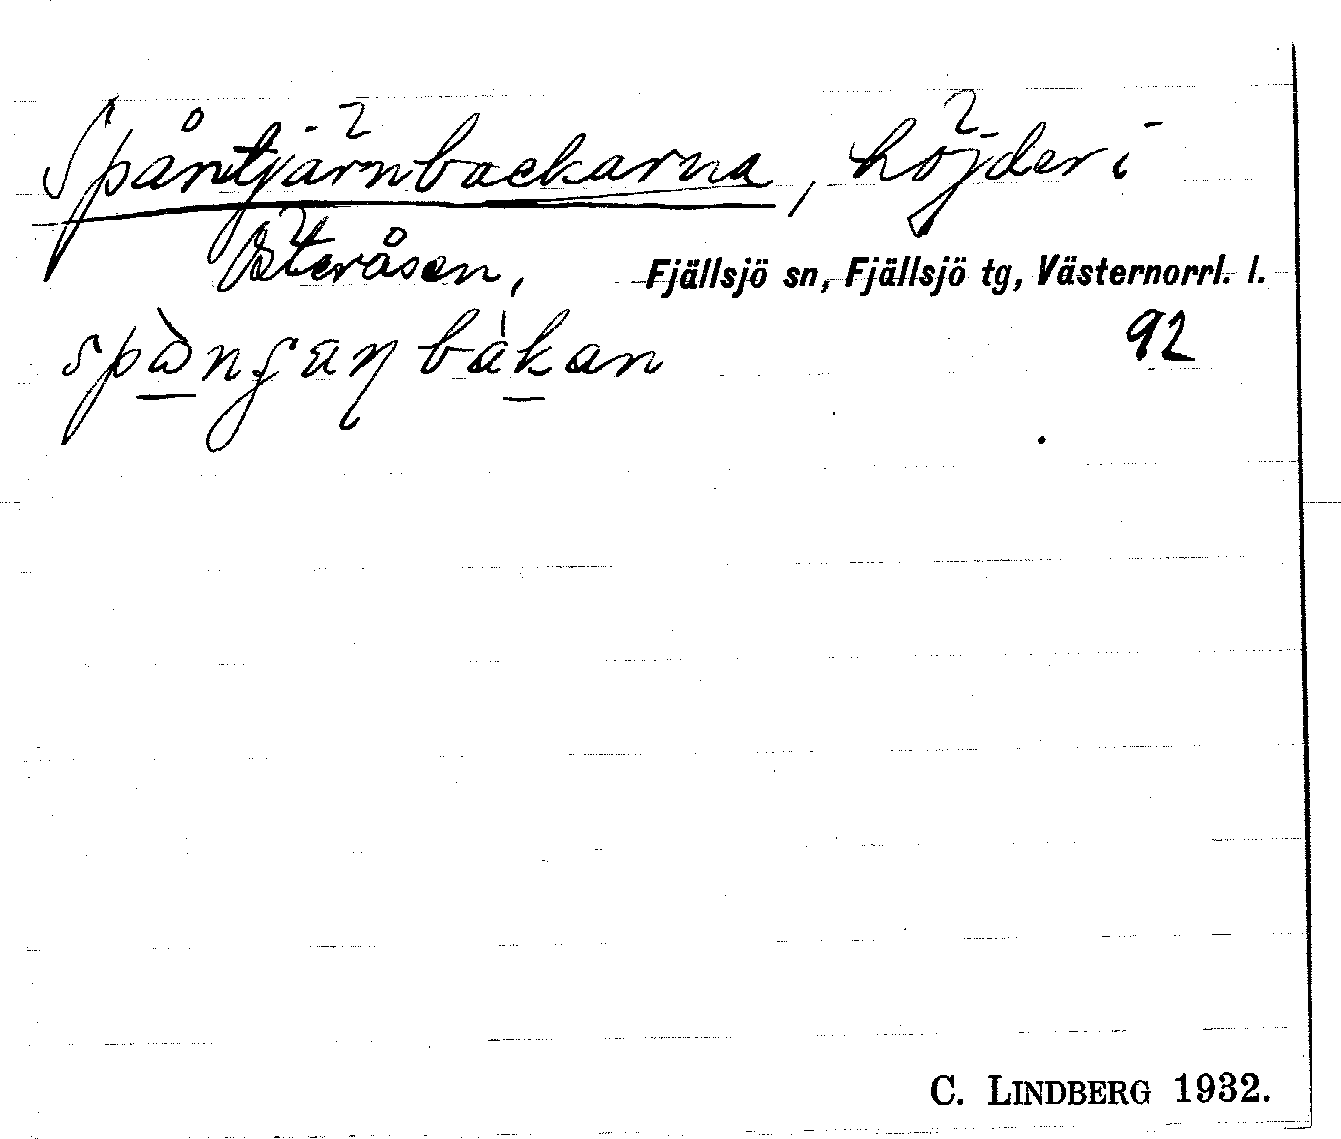 Spåntjärnbackarna, höjder i
Österåsen, Fjällsjö sn, Fjällsjö tg, Västernorrl. l.
92
C. LINDBERG 1932.